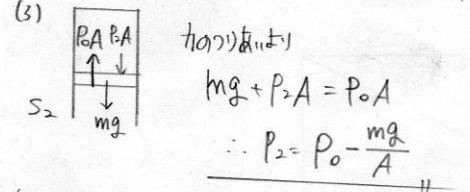 (3)
P₀A P₂A
S₂
mg
力のつりあいより
mg + P₂A = P₀A
∴ P₂ = P₀ - mg/A